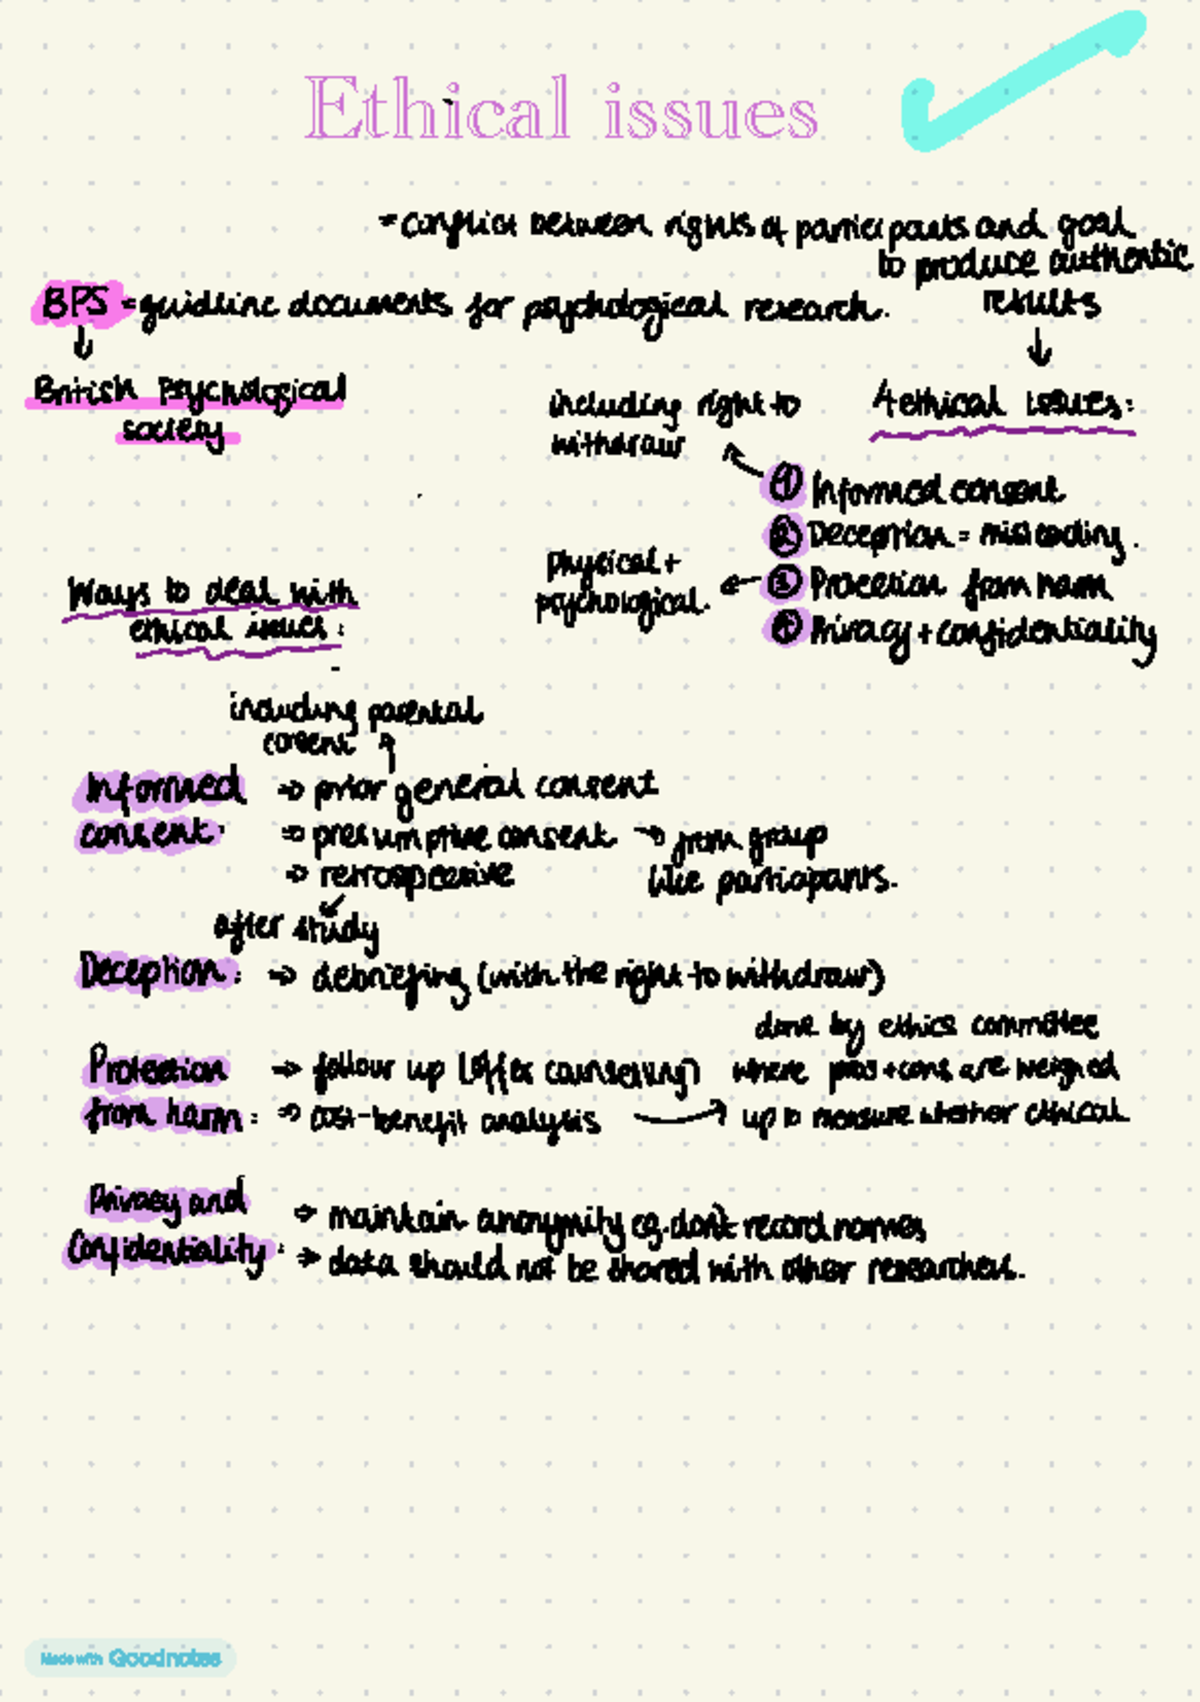 Ethical issues
= conflict between rights of participants and goal
to produce authentic
results
BPS = guidline documents for psychological research.
British Psychological
society
4 ethical issues:
including right to
withdraw
① Informed consent
② Deception = misleading.
③ Protection from harm
Physical +
psychological.
④ Privacy + confidentiality
Ways to deal with
ethical issues:
including parental
consent
Informed
consent:
⇒ prior general consent
⇒ presumptive consent → from group
like participants.
⇒ retrospective
after study
Deception: ⇒ debriefing (with the right to withdraw)
Protection
from harm:
→ follow up (offer counselling)
⇒ cost-benefit analysis
done by ethics committee
where pros + cons are weighed
up to measure whether ethical
Privacy and
Confidentiality:
⇒ maintain anonymity eg. don't record names
⇒ data should not be shared with other researchers.
Made with Goodnotes